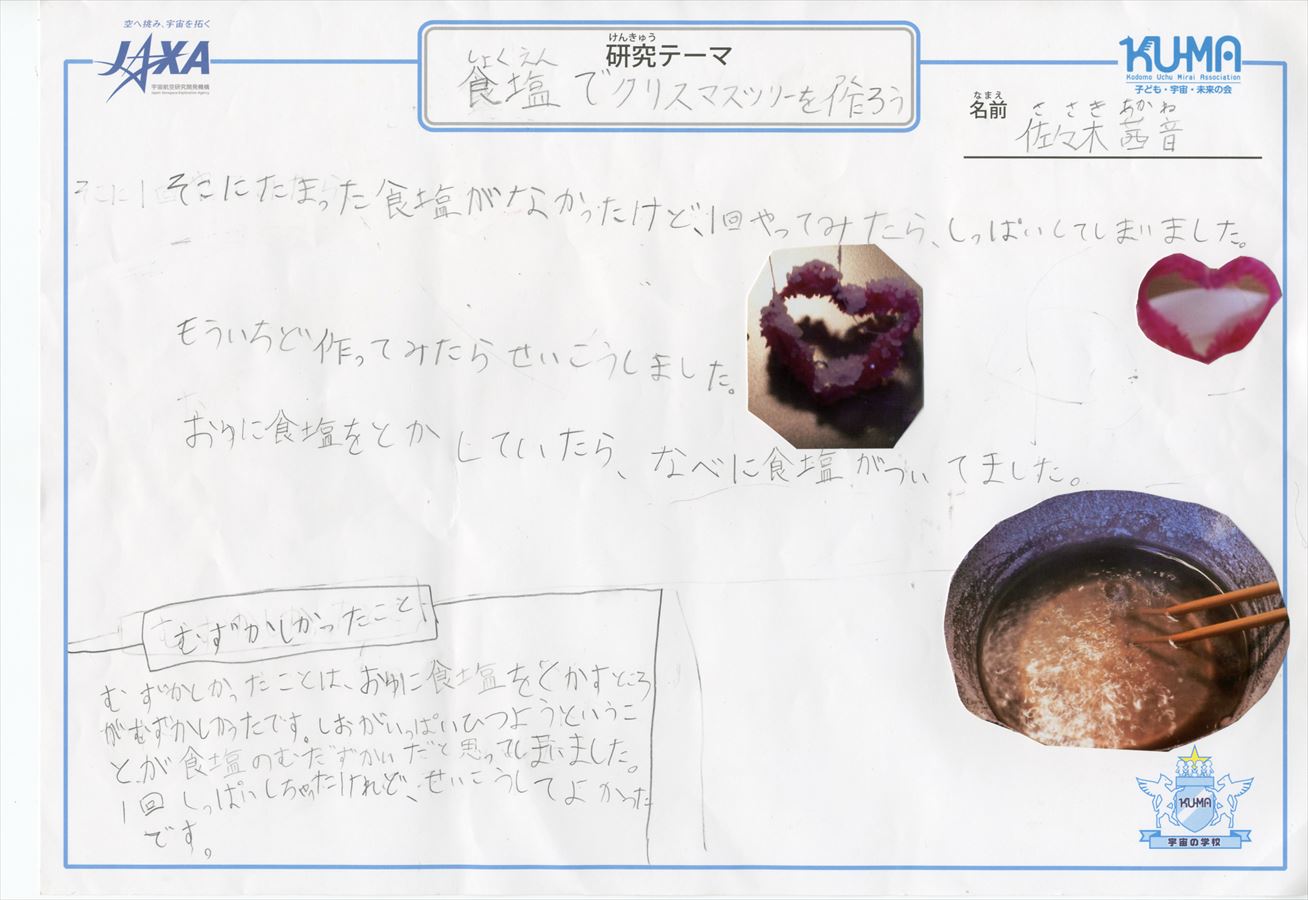 空へ挑み、宇宙を拓く
JAXA
宇宙航空研究開発機構
Japan Aerospace Exploration Agency
けんきゅう
研究テーマ
しょくえん
食塩でクリスマスツリーを作ろう
KU-MA
Kodomo Uchu Mirai Association
子ども・宇宙・未来の会
なまえ
名前
ささき あかね
佐々木 茜音
そこにたまった食塩がなかったけど、1回やってみたら、しっぱいしてしまいました。
もういちど作ってみたらせいこうしました。
おゆに食塩をとかしていたら、なべに食塩がついてました。
むずかしかったこと
むずかしかったことは、おゆに食塩をとかすところ
がむずかしかったです。しおがいっぱいひつようというこ
とが食塩のむだずかいだと思ってしまいました。
1回しっぱいしちゃったけれど、せいこうしてよかった
です。
KU-MA
宇宙の学校